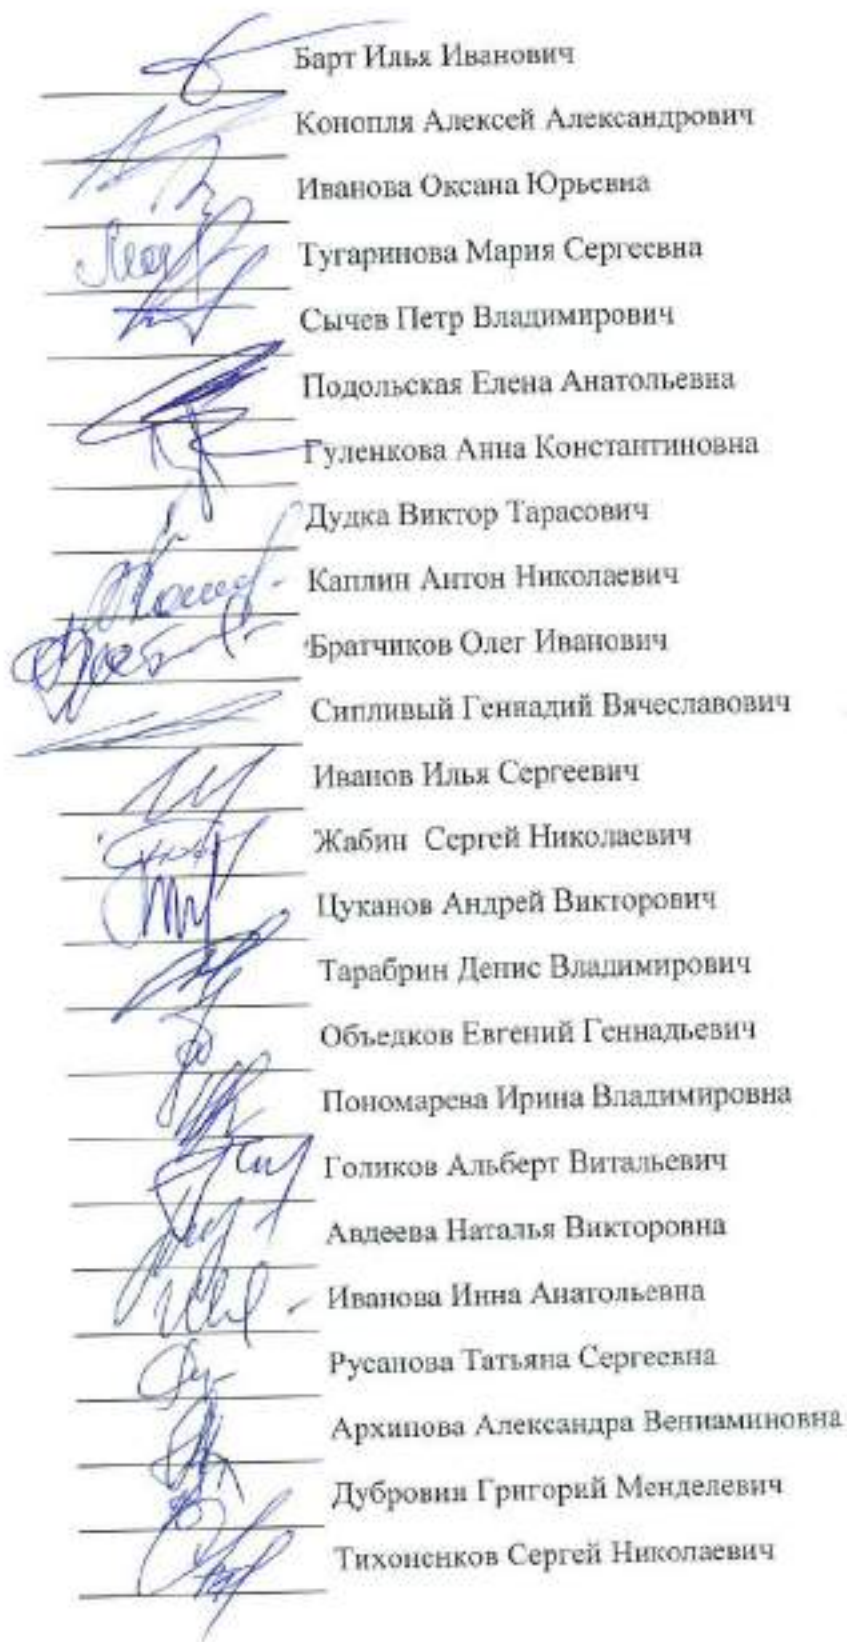 Барт Илья Иванович
Конопля Алексей Александрович
Иванова Оксана Юрьевна
Тугаринова Мария Сергеевна
Сычев Петр Владимирович
Подольская Елена Анатольевна
Гуленкова Анна Константиновна
Дудка Виктор Тарасович
Каплин Антон Николаевич
Братчиков Олег Иванович
Сипливый Геннадий Вячеславович
Иванов Илья Сергеевич
Жабин Сергей Николаевич
Цуканов Андрей Викторович
Тарабрин Денис Владимирович
Объедков Евгений Геннадьевич
Пономарева Ирина Владимировна
Голиков Альберт Витальевич
Авдеева Наталья Викторовна
Иванова Инна Анатольевна
Русанова Татьяна Сергеевна
Архипова Александра Вениаминовна
Дубровин Григорий Менделевич
Тихоненков Сергей Николаевич